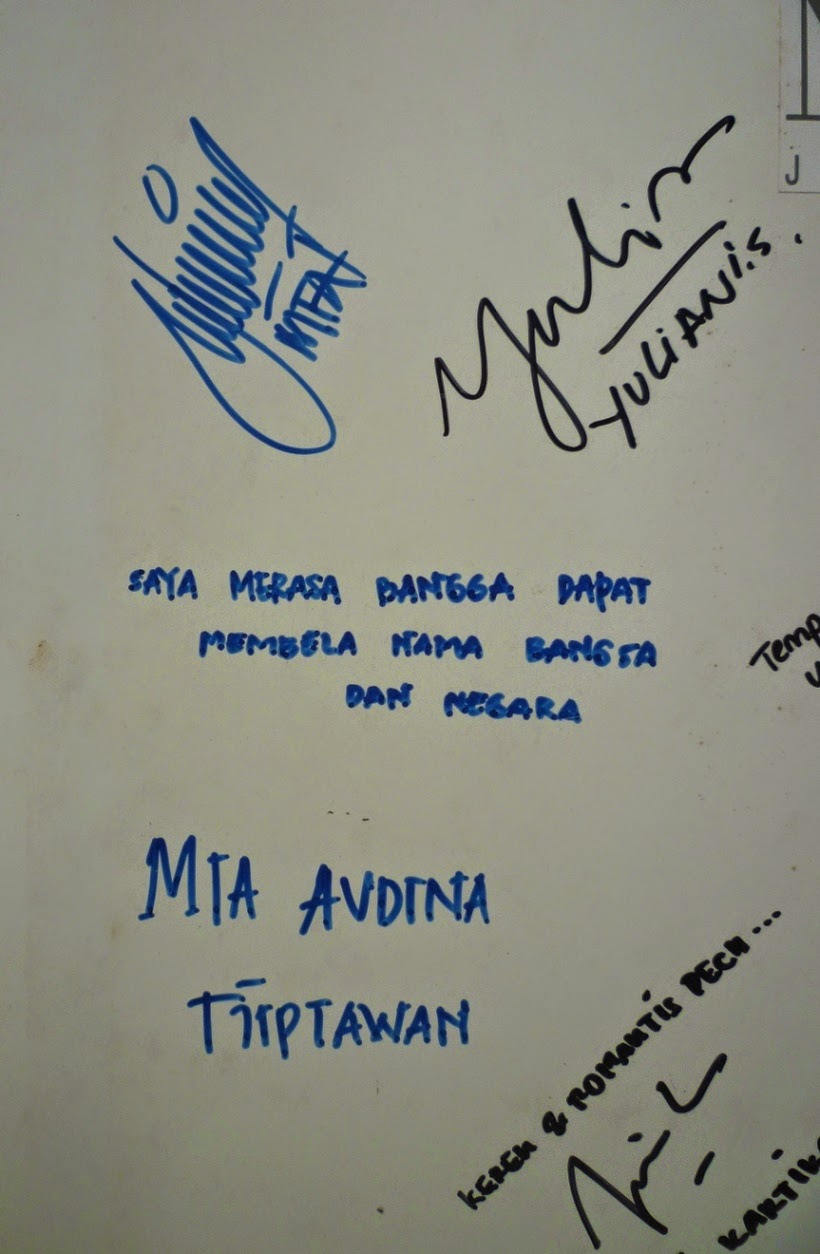 J
Yulia
MIA
YULIANI.S.
SAYA MERASA BANGGA DAPAT
MEMBELA NAMA BANGSA
DAN NEGARA
Temp
MIA AUDINA
TJIPTAWAN
KEREN & ROMANTIS DECH...
KARTIK